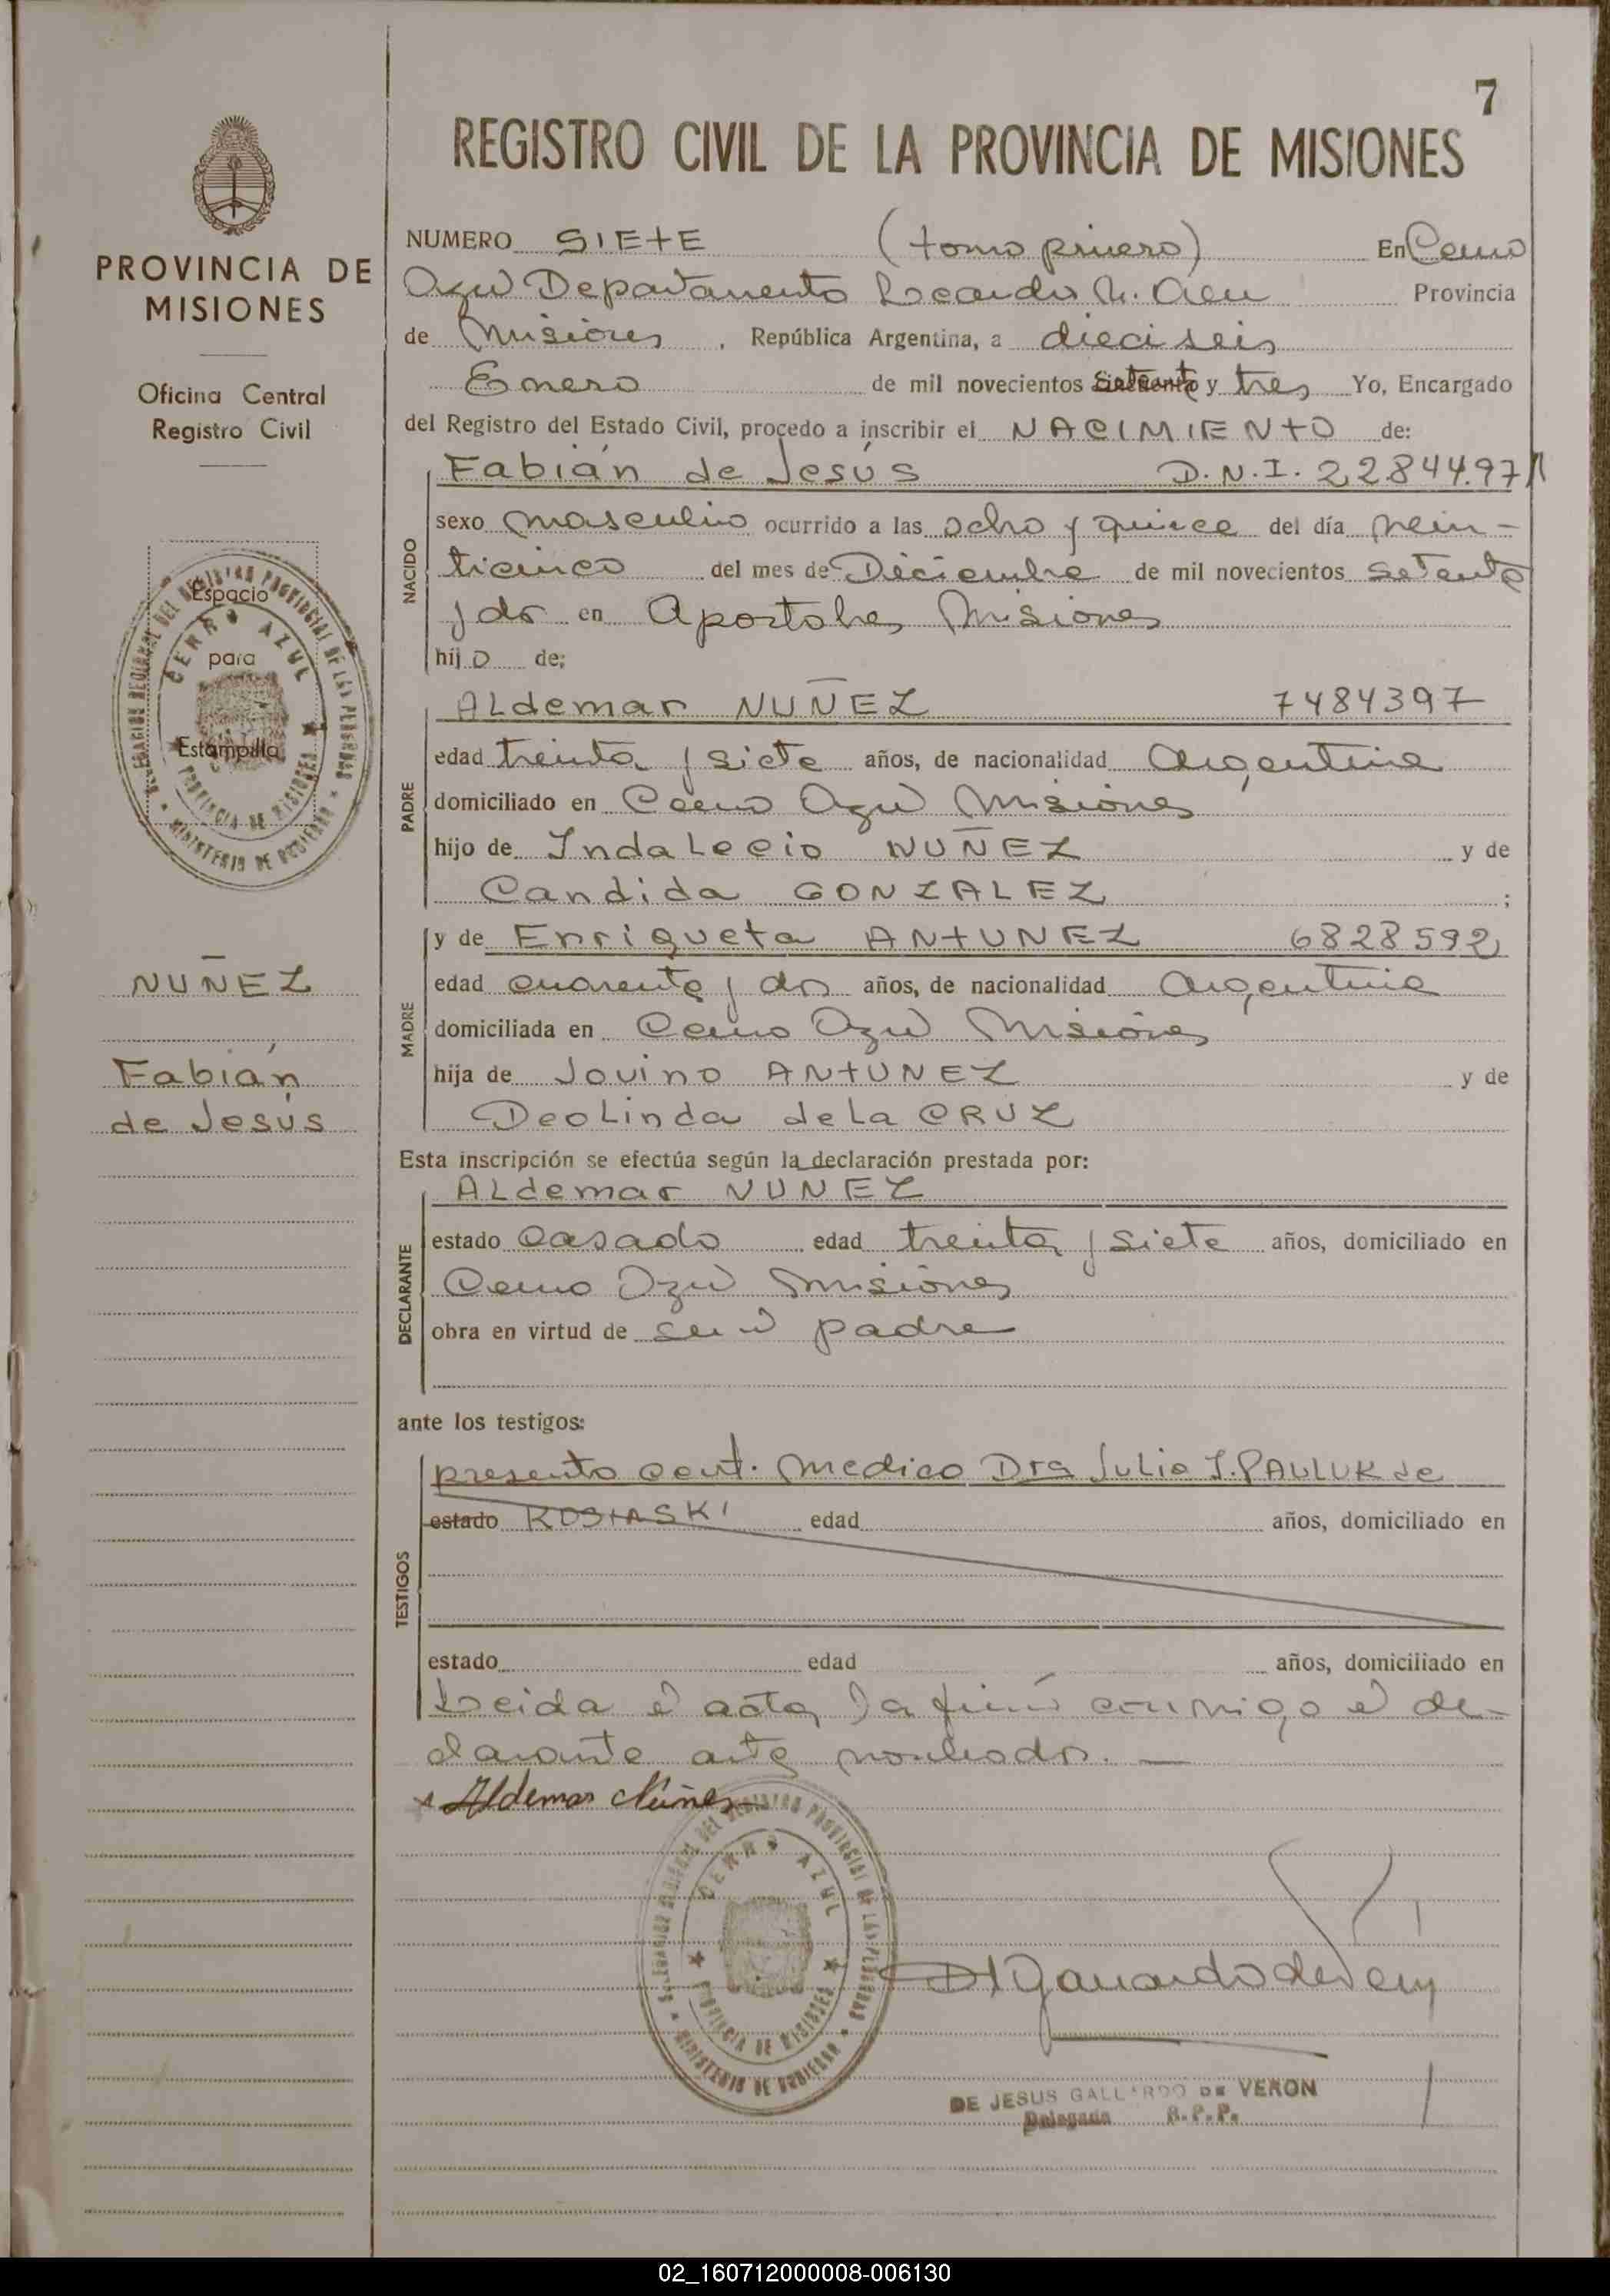 7
REGISTRO CIVIL DE LA PROVINCIA DE MISIONES
PROVINCIA DE
MISIONES
Oficina Central
Registro Civil
Espacio
para
Estampilla
CERRO AZUL
PROVINCIA DE MISIONES
MINISTERIO DE GOBIERNO
NUÑEZ
Fabián
de Jesús
NUMERO SIETE (tomo primero) En Cerro
Azul Departamento Leandro N. Alem Provincia
de Misiones, República Argentina, a dieciseis
Enero de mil novecientos setenta y tres Yo, Encargado
del Registro del Estado Civil, procedo a inscribir el NACIMIENTO de:
NACIDO
Fabián de Jesús D.N.I. 22.844.971
sexo masculino ocurrido a las ocho y quince del día vein-
ticinco del mes de Diciembre de mil novecientos setenta
y dos en Apostoles Misiones
hijo de:
PADRE
Aldemar NUÑEZ 7484397
edad treinta y siete años, de nacionalidad Argentina
domiciliado en Cerro Azul Misiones
hijo de Indalecio NUÑEZ y de
Candida GONZALEZ ;
MADRE
y de Enriqueta ANTUNEZ 6828592
edad cuarenta y dos años, de nacionalidad Argentina
domiciliada en Cerro Azul Misiones
hija de Jovino ANTUNEZ y de
Deolinda de la CRUZ
Esta inscripción se efectúa según la declaración prestada por:
DECLARANTE
Aldemar NUNEZ
estado casado edad treinta y siete años, domiciliado en
Cerro Azul Misiones
obra en virtud de ser el padre
ante los testigos:
TESTIGOS
presento cert. medico Dra Julia I. PAULUK de
estado KOSTASKI edad años, domiciliado en
estado edad años, domiciliado en
Leida el acta, la firmó conmigo el de-
clarante ante nombrado. —
x Aldemar Núñez
CERRO AZUL
PROVINCIA DE MISIONES
MINISTERIO DE GOBIERNO
DE JESUS GALLARDO DE VERON
Delegada R.P.P.
02_160712000008-006130